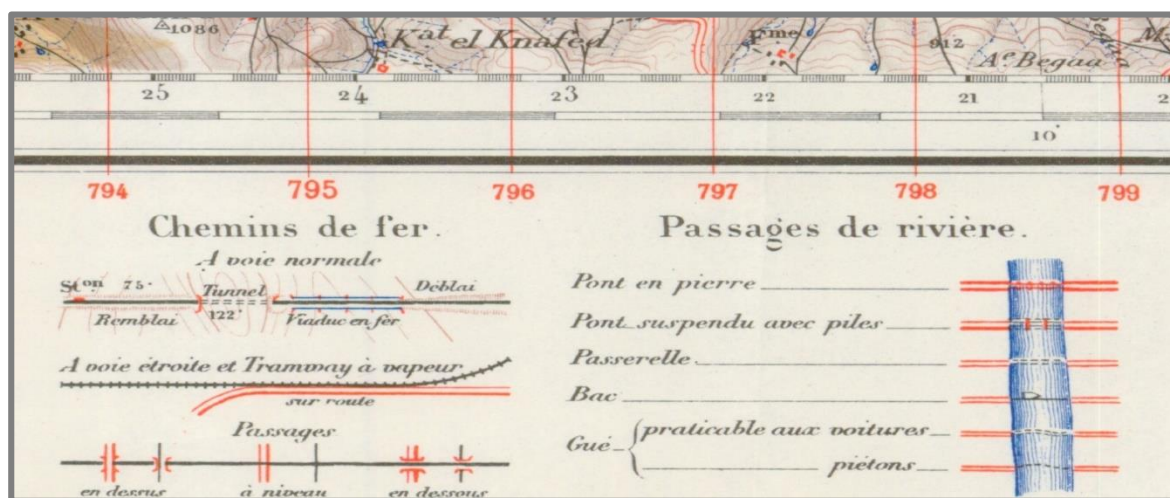 1086
Kat el Knafed
Fme
912
Aⁿ Begaa
25 24 23 22 21
10'
794 795 796 797 798 799
Chemins de fer.
A voie normale
Stон 75.
Tunnel
Déblai
Remblai
122.
Viaduc en fer
A voie étroite et Tramway à vapeur
sur route
Passages
en dessus à niveau en dessous
Passages de rivière.
Pont en pierre
Pont suspendu avec piles
Passerelle
Bac
Gué { praticable aux voitures
piétons